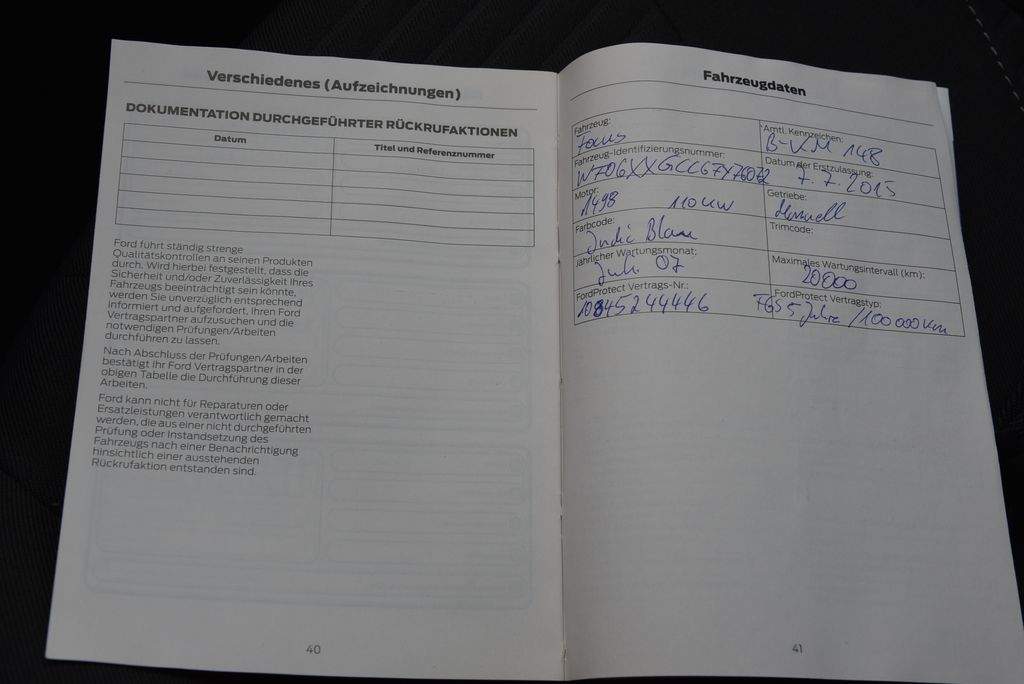 Verschiedenes (Aufzeichnungen)
DOKUMENTATION DURCHGEFÜHRTER RÜCKRUFAKTIONEN
Datum
Titel und Referenznummer
Ford führt ständig strenge
Qualitätskontrollen an seinen Produkten
durch. Wird hierbei festgestellt, dass die
Sicherheit und/oder Zuverlässigkeit Ihres
Fahrzeugs beeinträchtigt sein könnte,
werden Sie unverzüglich entsprechend
informiert und aufgefordert, Ihren Ford
Vertragspartner aufzusuchen und die
notwendigen Prüfungen/Arbeiten
durchführen zu lassen.
Nach Abschluss der Prüfungen/Arbeiten
bestätigt Ihr Ford Vertragspartner in der
obigen Tabelle die Durchführung dieser
Arbeiten.
Ford kann nicht für Reparaturen oder
Ersatzleistungen verantwortlich gemacht
werden, die aus einer nicht durchgeführten
Prüfung oder Instandsetzung des
Fahrzeugs nach einer Benachrichtigung
hinsichtlich einer ausstehenden
Rückrufaktion entstanden sind.
40
Fahrzeugdaten
Fahrzeug:
Focus
Amtl. Kennzeichen:
B-VM 148
Fahrzeug-Identifizierungsnummer:
WF06XXGCC6FY76072
Datum der Erstzulassung:
7.7.2015
Motor:
1498 110 KW
Getriebe:
Manuell
Farbcode:
Indic Blau
Trimcode:
Jährlicher Wartungsmonat:
Juli 07
Maximales Wartungsintervall (km):
20000
FordProtect Vertrags-Nr.:
10845244446
FordProtect Vertragstyp:
FGS 5 Jahre /100 000 Km
41